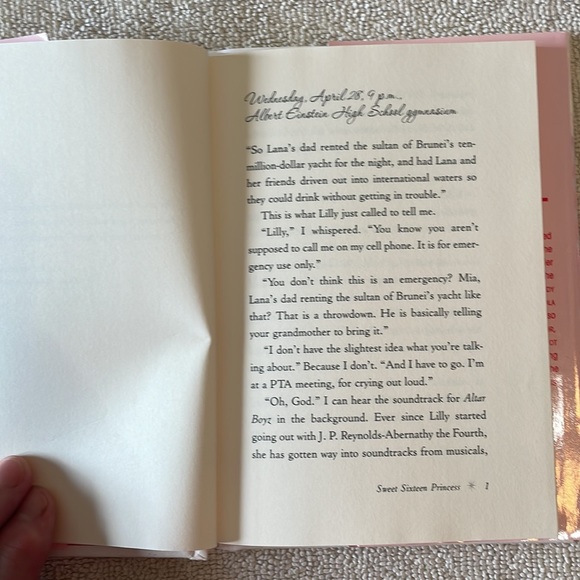 Wednesday, April 28, 9 p.m.,
Albert Einstein High School gymnasium
"So Lana's dad rented the sultan of Brunei's ten-
million-dollar yacht for the night, and had Lana and
her friends driven out into international waters so
they could drink without getting in trouble."
This is what Lilly just called to tell me.
"Lilly," I whispered. "You know you aren't
supposed to call me on my cell phone. It is for emer-
gency use only."
"You don't think this is an emergency? Mia,
Lana's dad renting the sultan of Brunei's yacht like
that? That is a throwdown. He is basically telling
your grandmother to bring it."
"I don't have the slightest idea what you're talk-
ing about." Because I don't. "And I have to go. I'm
at a PTA meeting, for crying out loud."
"Oh, God." I can hear the soundtrack for Altar
Boyz in the background. Ever since Lilly started
going out with J. P. Reynolds-Abernathy the Fourth,
she has gotten way into soundtracks from musicals,
Sweet Sixteen Princess * 1